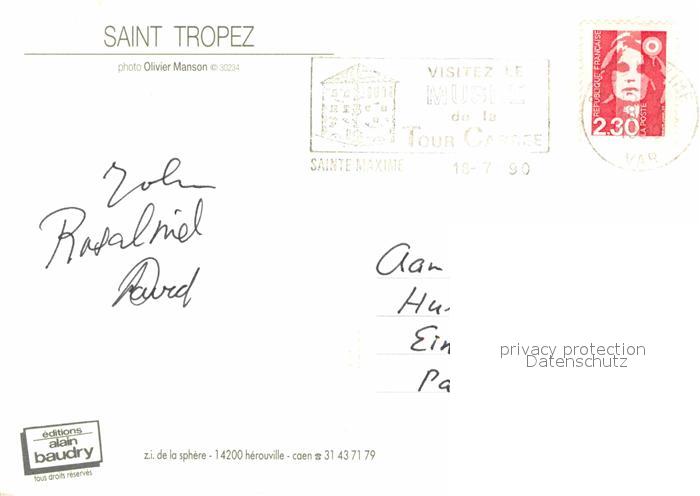 SAINT TROPEZ
photo Olivier Manson © 30234
VISITEZ LE
MUSEE
de la
TOUR CARREE
SAINTE MAXIME 18-7 90
REPUBLIQUE FRANÇAISE
LA POSTE
2.30
VAR
John
David
Aan
Hu
Ein
Pa
privacy protection
Datenschutz
éditions
alain
baudry
tous droits réservés
z.i. de la sphère - 14200 hérouville - caen ☎ 31 43 71 79